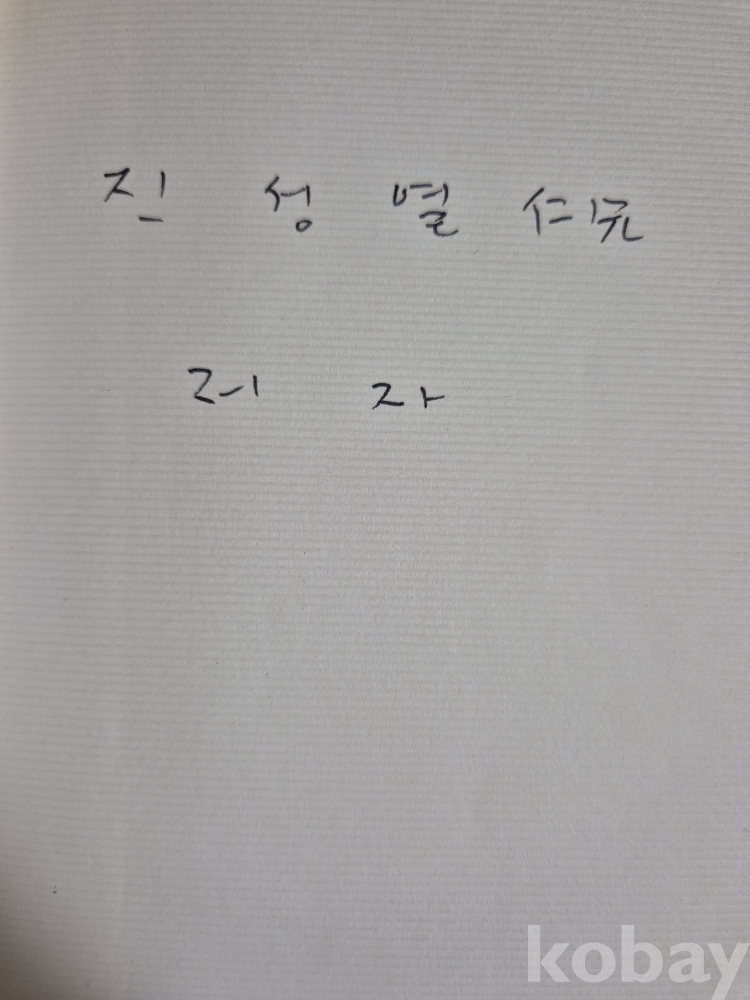 진 성 열 仁兄
저 자
kobay